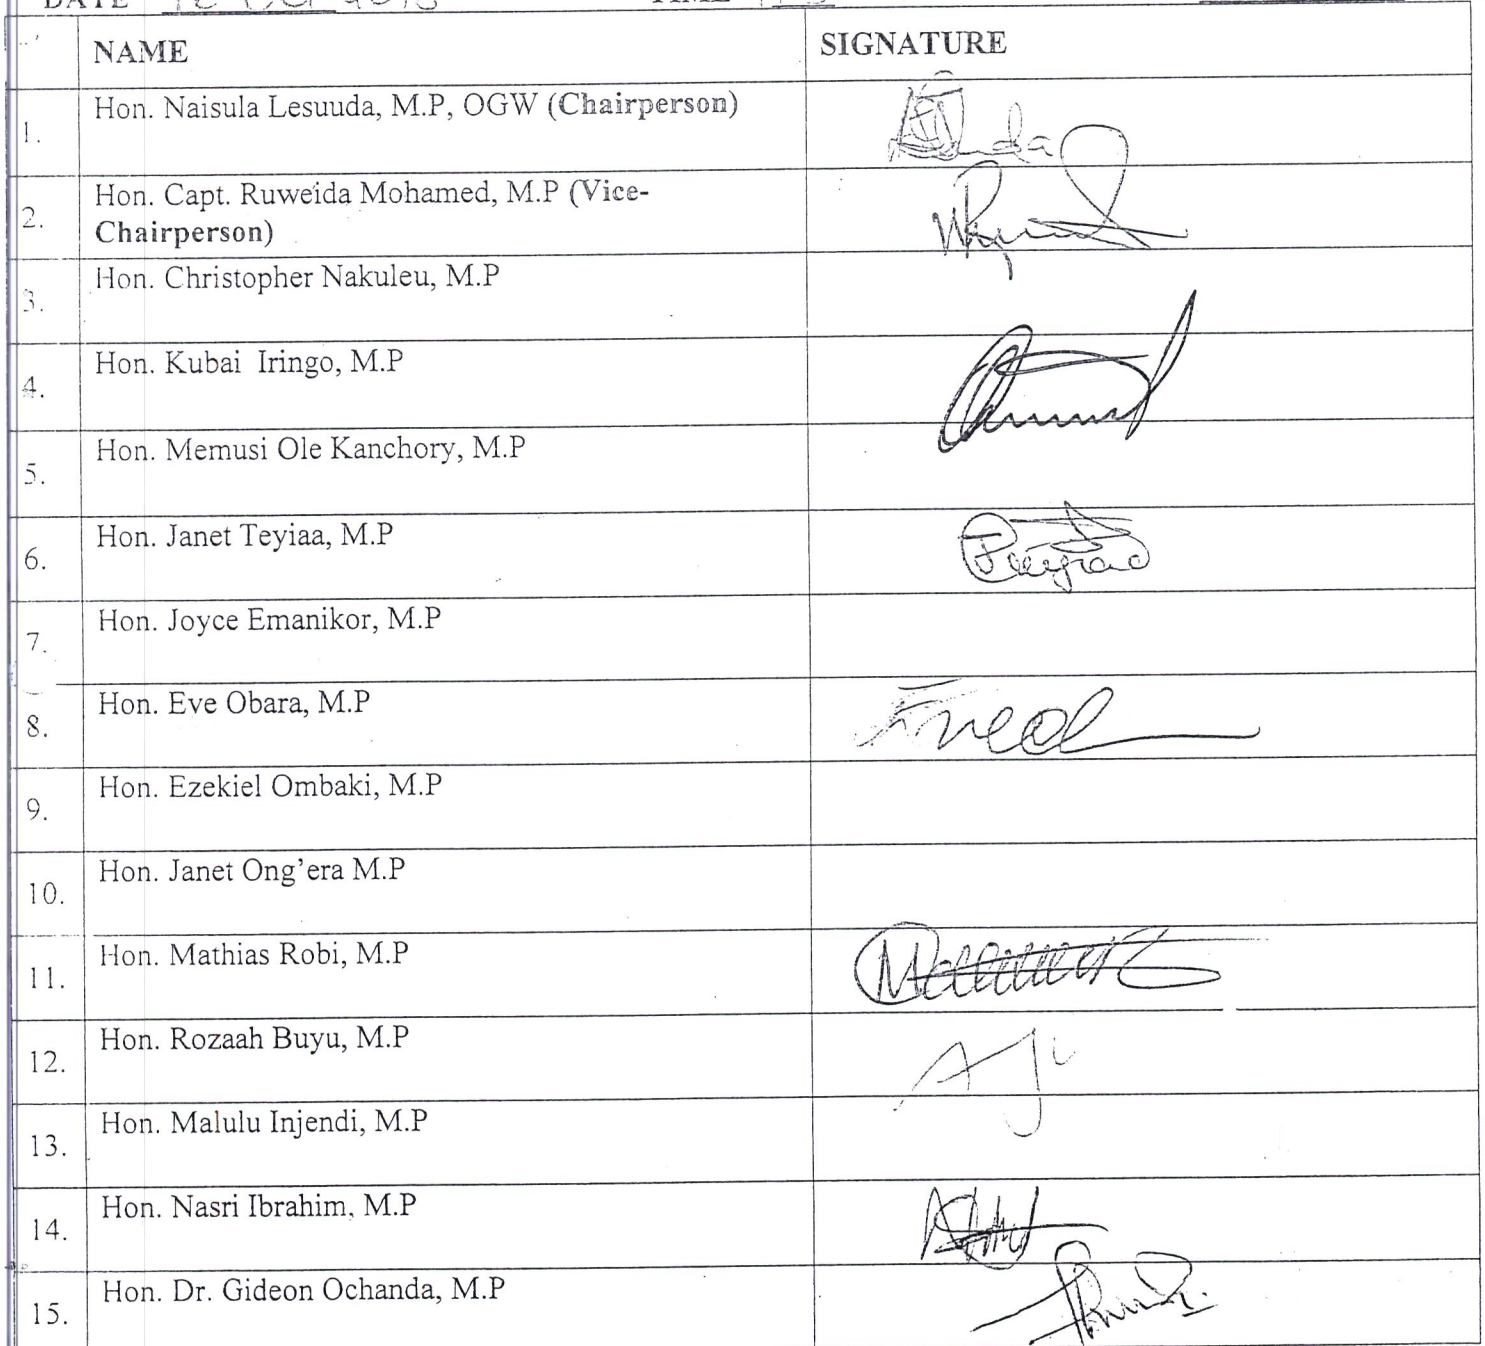 DATE
NAME
SIGNATURE
1.
Hon. Naisula Lesuuda, M.P, OGW (Chairperson)
2.
Hon. Capt. Ruweida Mohamed, M.P (Vice-
Chairperson)
3.
Hon. Christopher Nakuleu, M.P
4.
Hon. Kubai Iringo, M.P
5.
Hon. Memusi Ole Kanchory, M.P
6.
Hon. Janet Teyiaa, M.P
7.
Hon. Joyce Emanikor, M.P
8.
Hon. Eve Obara, M.P
9.
Hon. Ezekiel Ombaki, M.P
10.
Hon. Janet Ong'era M.P
11.
Hon. Mathias Robi, M.P
12.
Hon. Rozaah Buyu, M.P
13.
Hon. Malulu Injendi, M.P
14.
Hon. Nasri Ibrahim, M.P
15.
Hon. Dr. Gideon Ochanda, M.P